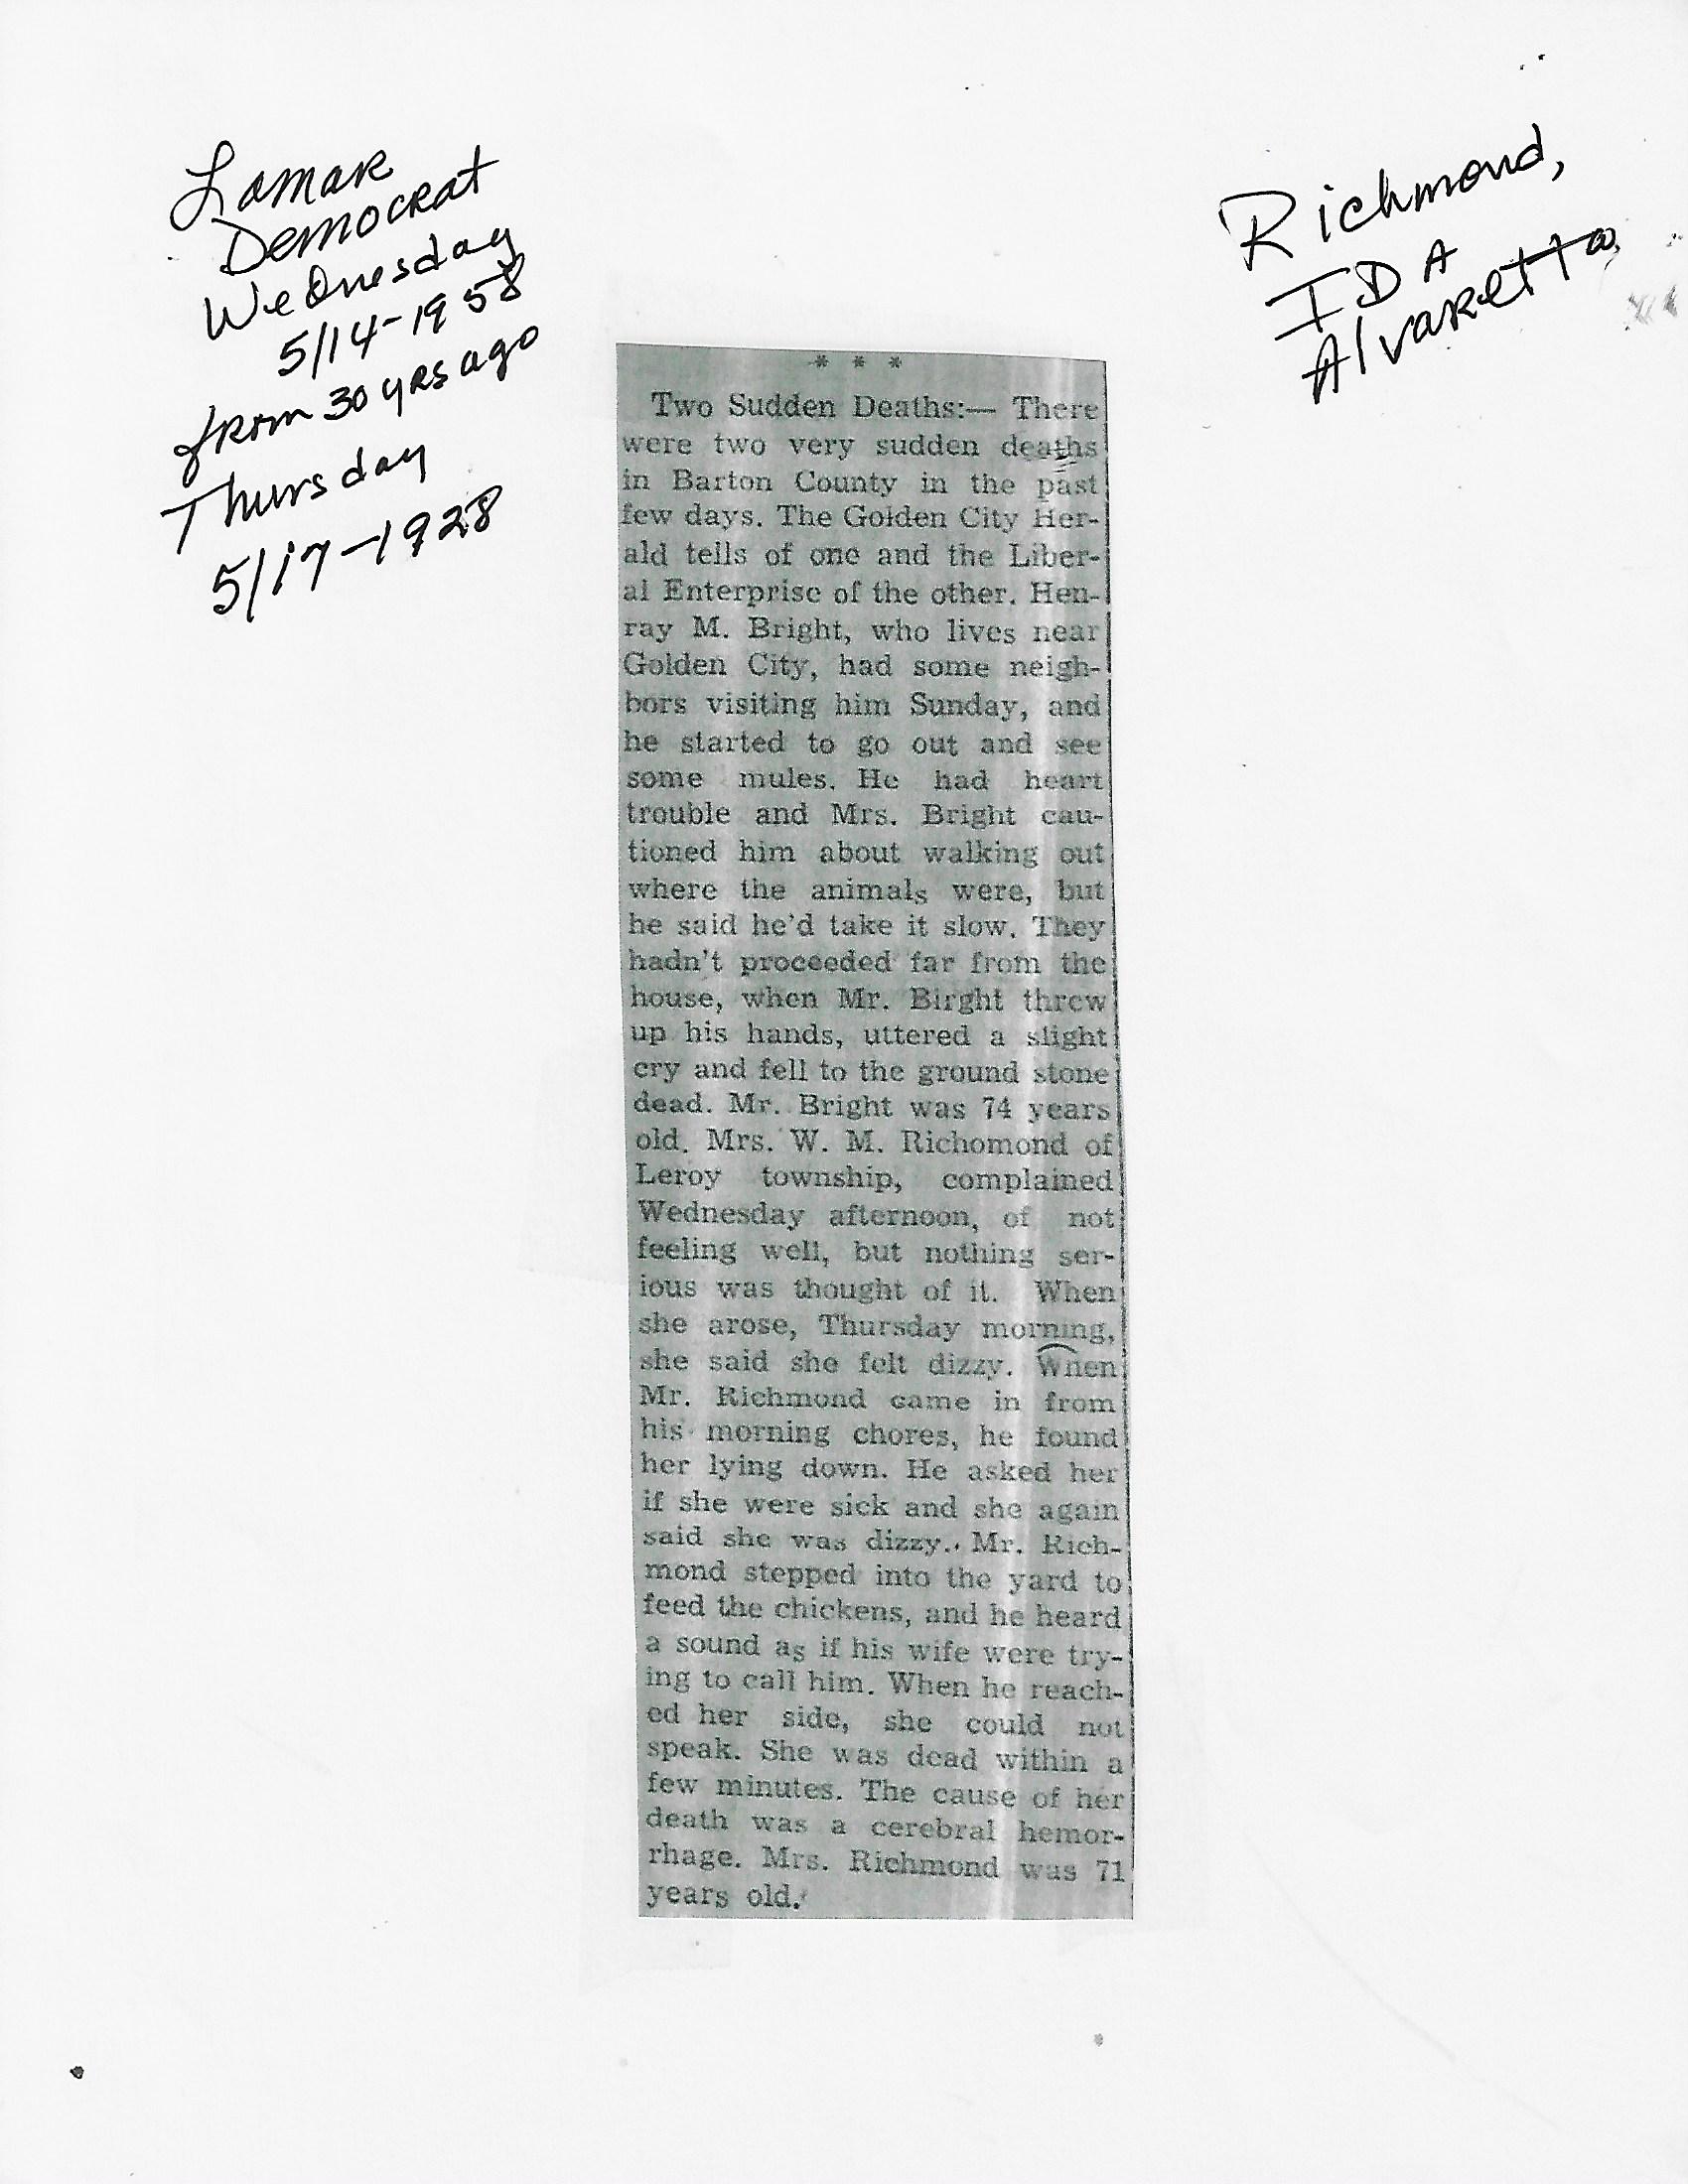 Lamar
Democrat
Wednesday
5/14-1958
from 30 yrs ago
Thursday
5/17-1928
Richmond,
IDA
Alvaretta
* * *
Two Sudden Deaths:— There
were two very sudden deaths
in Barton County in the past
few days. The Golden City Her-
ald tells of one and the Liber-
al Enterprise of the other. Hen-
ray M. Bright, who lives near
Golden City, had some neigh-
bors visiting him Sunday, and
he started to go out and see
some mules. He had heart
trouble and Mrs. Bright cau-
tioned him about walking out
where the animals were, but
he said he'd take it slow. They
hadn't proceeded far from the
house, when Mr. Birght threw
up his hands, uttered a slight
cry and fell to the ground stone
dead. Mr. Bright was 74 years
old. Mrs. W. M. Richomond of
Leroy township, complained
Wednesday afternoon, of not
feeling well, but nothing ser-
ious was thought of it. When
she arose, Thursday morning,
she said she felt dizzy. When
Mr. Richmond came in from
his morning chores, he found
her lying down. He asked her
if she were sick and she again
said she was dizzy.. Mr. Rich-
mond stepped into the yard to
feed the chickens, and he heard
a sound as if his wife were try-
ing to call him. When he reach-
ed her side, she could not
speak. She was dead within a
few minutes. The cause of her
death was a cerebral hemor-
rhage. Mrs. Richmond was 71
years old.